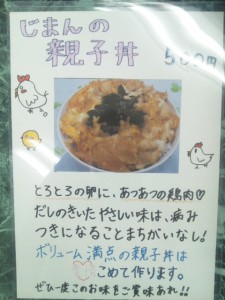 じまんの
親子丼 500円
とろとろの卵に、あつあつの鶏肉♡
だしのきいたやさしい味は、病み
つきになることまちがいなし!
ボリューム満点の親子丼は
こめて作ります。
ぜひ一度このお味をご賞味あれ!!